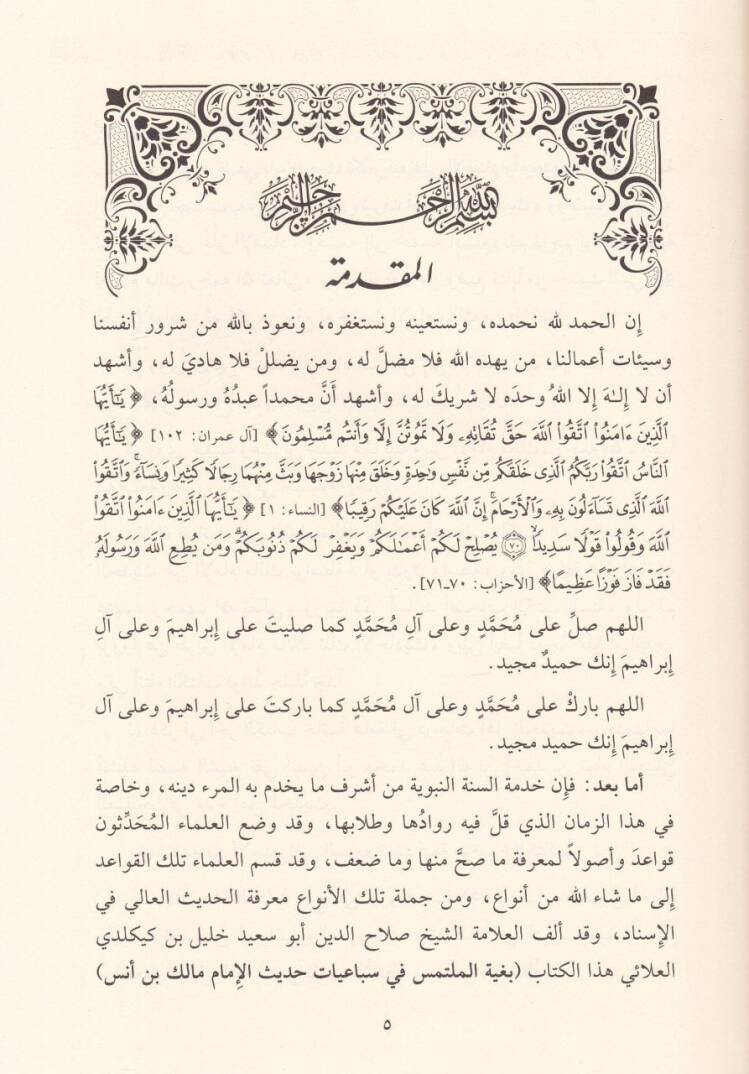 بسم الله الرحمن الرحيم
المقدمة
إن الحمد لله نحمده، ونستعينه ونستغفره، ونعوذ بالله من شرور أنفسنا
وسيئات أعمالنا، من يهده الله فلا مضلَّ له، ومن يضللْ فلا هاديَ له، وأشهد
أن لا إلـٰهَ إلا اللهُ وحدَه لا شريكَ له، وأشهد أَنَّ محمداً عبدُهُ ورسولُهُ، ﴿يَٰٓأَيُّهَا
ٱلَّذِينَ ءَامَنُوا۟ ٱتَّقُوا۟ ٱللَّهَ حَقَّ تُقَاتِهِۦ وَلَا تَمُوتُنَّ إِلَّا وَأَنتُم مُّسْلِمُونَ﴾ [آل عمران: ١٠٢] ﴿يَٰٓأَيُّهَا
ٱلنَّاسُ ٱتَّقُوا۟ رَبَّكُمُ ٱلَّذِى خَلَقَكُم مِّن نَّفْسٍ وَٰحِدَةٍ وَخَلَقَ مِنْهَا زَوْجَهَا وَبَثَّ مِنْهُمَا رِجَالًا كَثِيرًا وَنِسَآءً ۚ وَٱتَّقُوا۟
ٱللَّهَ ٱلَّذِى تَسَآءَلُونَ بِهِۦ وَٱلْأَرْحَامَ ۚ إِنَّ ٱللَّهَ كَانَ عَلَيْكُمْ رَقِيبًا﴾ [النساء: ١] ﴿يَٰٓأَيُّهَا ٱلَّذِينَ ءَامَنُوا۟ ٱتَّقُوا۟
ٱللَّهَ وَقُولُوا۟ قَوْلًا سَدِيدًا ۝٧٠ يُصْلِحْ لَكُمْ أَعْمَٰلَكُمْ وَيَغْفِرْ لَكُمْ ذُنُوبَكُمْ ۗ وَمَن يُطِعِ ٱللَّهَ وَرَسُولَهُۥ
فَقَدْ فَازَ فَوْزًا عَظِيمًا﴾ [الأحزاب: ٧٠ـ٧١].
اللهم صلِّ على مُحَمَّدٍ وعلى آلِ مُحَمَّدٍ كما صليتَ على إبراهيمَ وعلى آلِ
إبراهيمَ إنك حميدٌ مجيد.
اللهم باركْ على مُحَمَّدٍ وعلى آل مُحَمَّدٍ كما باركتَ على إبراهيمَ وعلى آل
إبراهيمَ إنك حميد مجيد.
أما بعد: فإن خدمة السنة النبوية من أشرف ما يخدم به المرء دينه، وخاصة
في هذا الزمان الذي قلَّ فيه روادُها وطلابها، وقد وضع العلماء المُحَدِّثون
قواعدَ وأصولاً لمعرفة ما صحَّ منها وما ضعف، وقد قسم العلماء تلك القواعد
إلى ما شاء الله من أنواع، ومن جملة تلك الأنواع معرفة الحديث العالي في
الإسناد، وقد ألف العلامة الشيخ صلاح الدين أبو سعيد خليل بن كيكلدي
العلائي هذا الكتاب (بغية الملتمس في سباعيات حديث الإمام مالك بن أنس)
٥